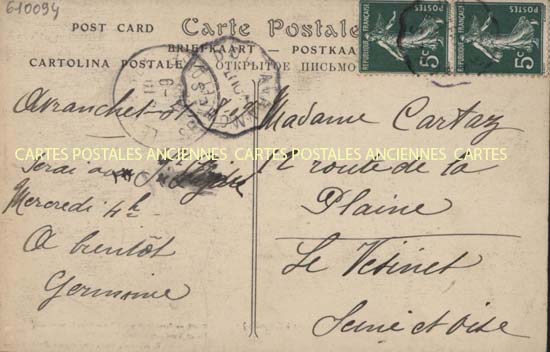 610094
POST CARD
Carte Postale
BRIEFKAART — POSTKAA
CARTOLINA POSTALE
ОТКРЫТОЕ ПИСЬМО
POSTES
RÉPUBLIQUE FRANÇAISE
5c
POSTES
RÉPUBLIQUE FRANÇAISE
5c
CARTES POSTALES ANCIENNES CARTES POSTALES ANCIENNES CARTES POSTALES ANCIENNES
Serai
Mercredi 4h
A bientôt
Germaine
Madame Cartaz
12 route de la
Plaine
Le Vésinet
Seine et Oise